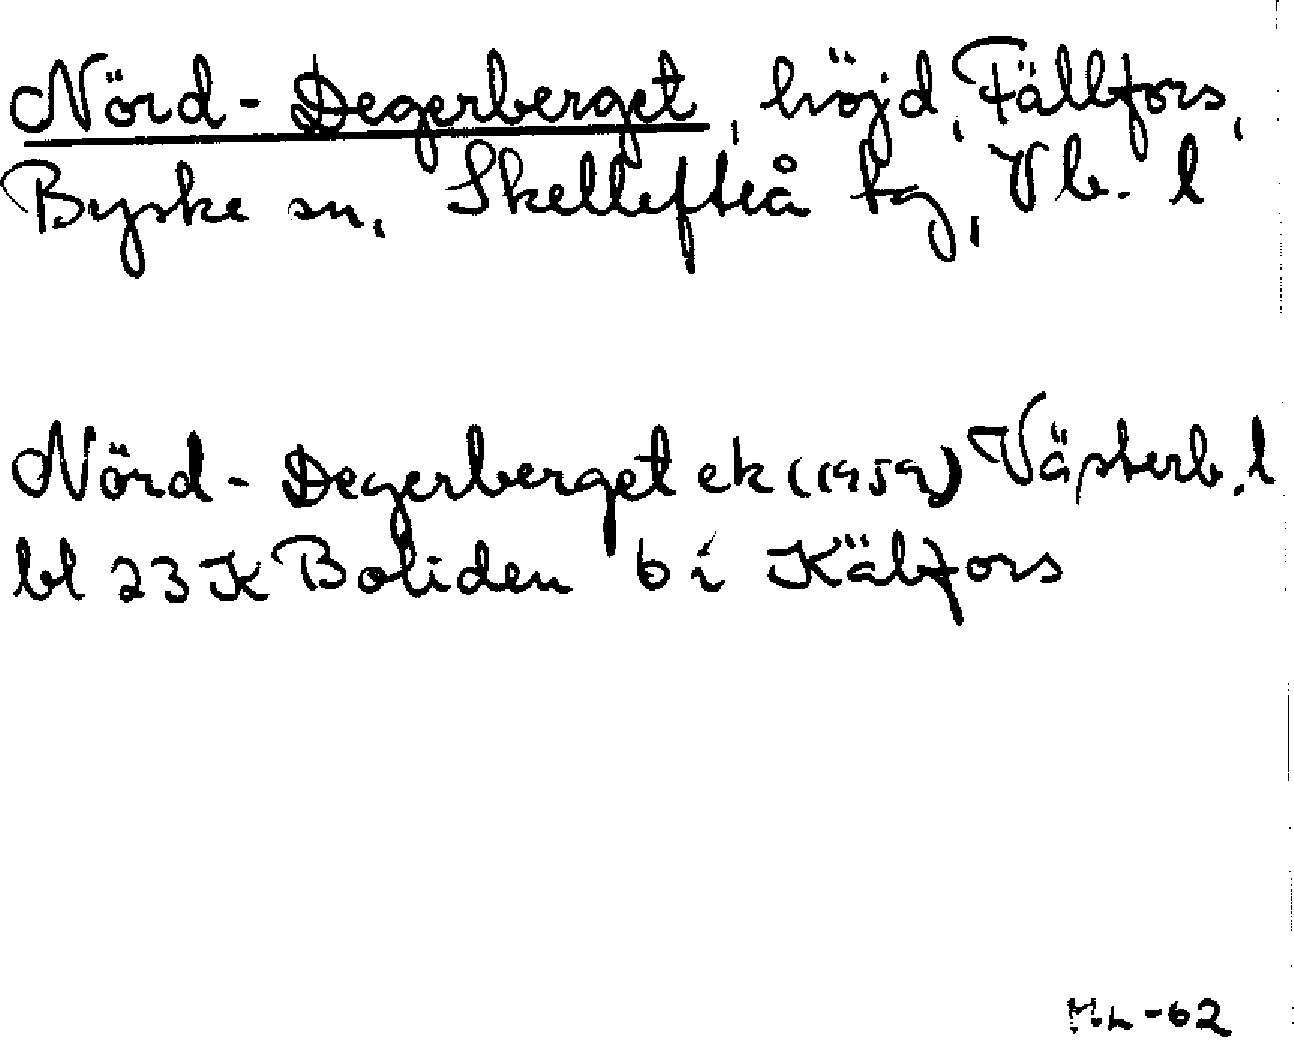 Nörd-Degerberget, höjd, Fällfors,
Byske sn, Skellefteå tg, Vb. l
Nörd-Degerberget ek (1959) Västerb. l
bl 23 K Boliden 6 i Källfors
ML-62